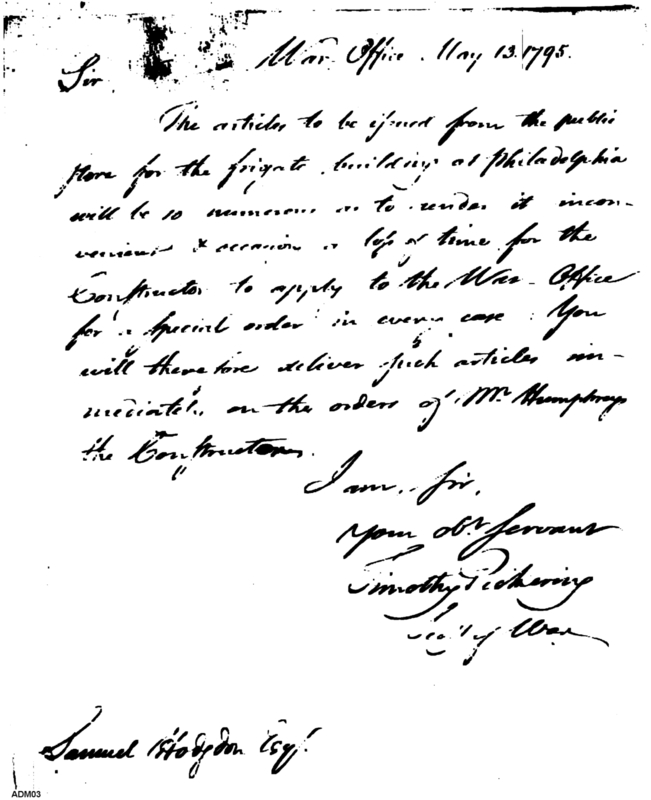 War Office. May 13. 1795.
Sir
The articles to be issued from the public
store for the frigate building at Philadelphia
will be so numerous as to render it incon-
venient & occasion a loss of time for the
Constructor to apply to the War Office
for a special order in every case. You
will therefore deliver such articles im-
mediately on the orders of Mr. Humphreys
the Constructor.
I am, Sir,
Your obt. Servant
Timothy Pickering
Secy of War
Samuel Hodgdon Esqr.
ADM03